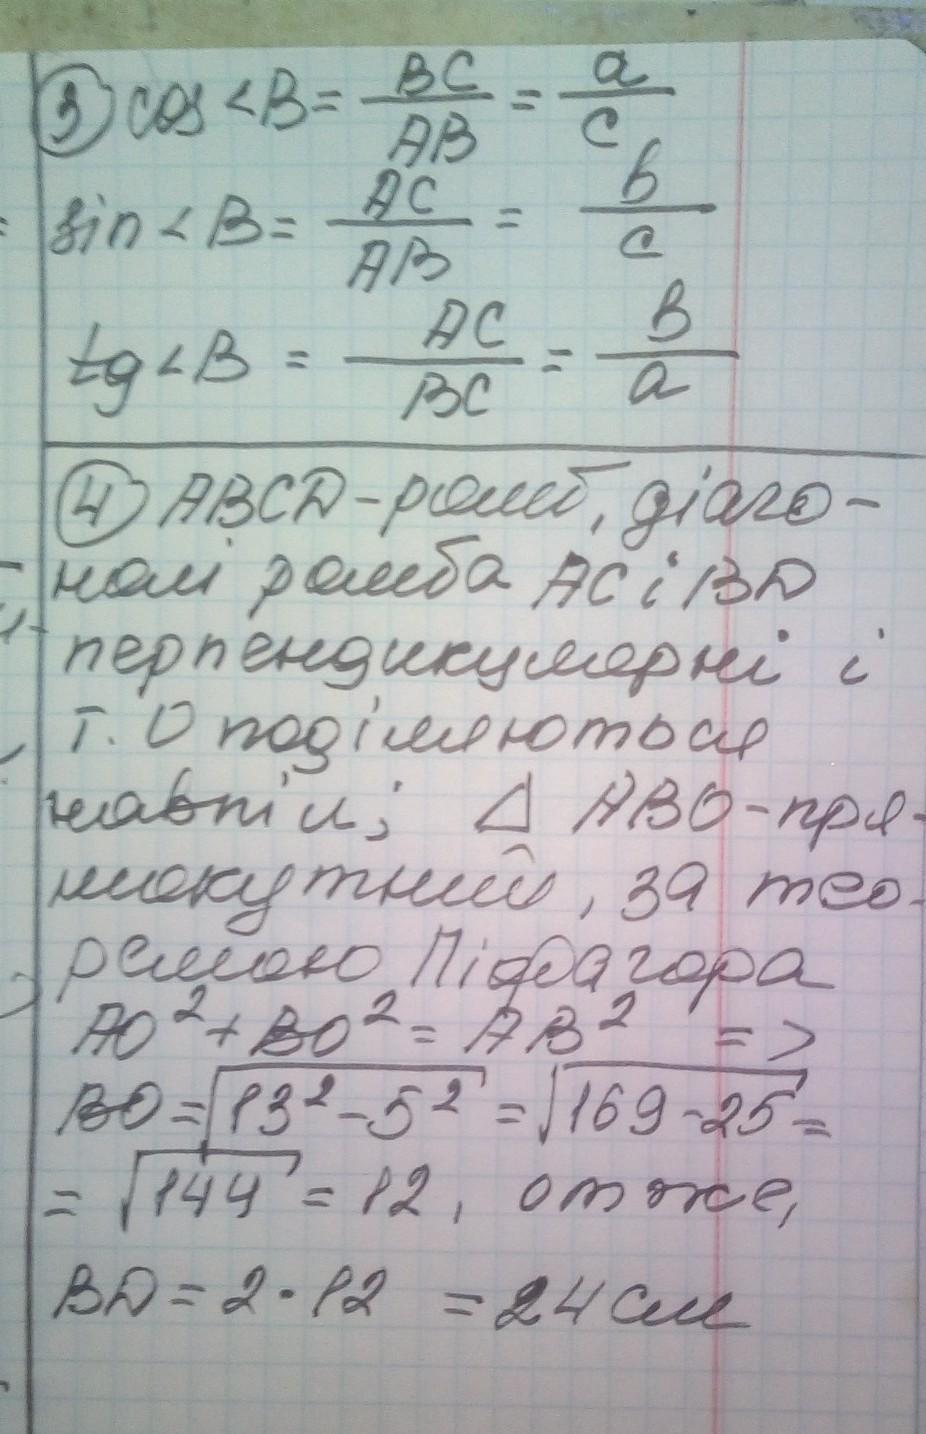 3) cos <B = BC/AB = a/c
sin <B = AC/AB = b/c
tg <B = AC/BC = b/a
4) ABCD - ромб, діаго-
налі ромба AC і BD
перпендикулярні і
т. O поділяються
навпіл; △ ABO - пря-
мокутний, за тео-
ремою Піфагора
AO² + BO² = AB² =>
BO = √13² - 5² = √169 - 25 =
= √144 = 12, отже,
BD = 2 · 12 = 24 см